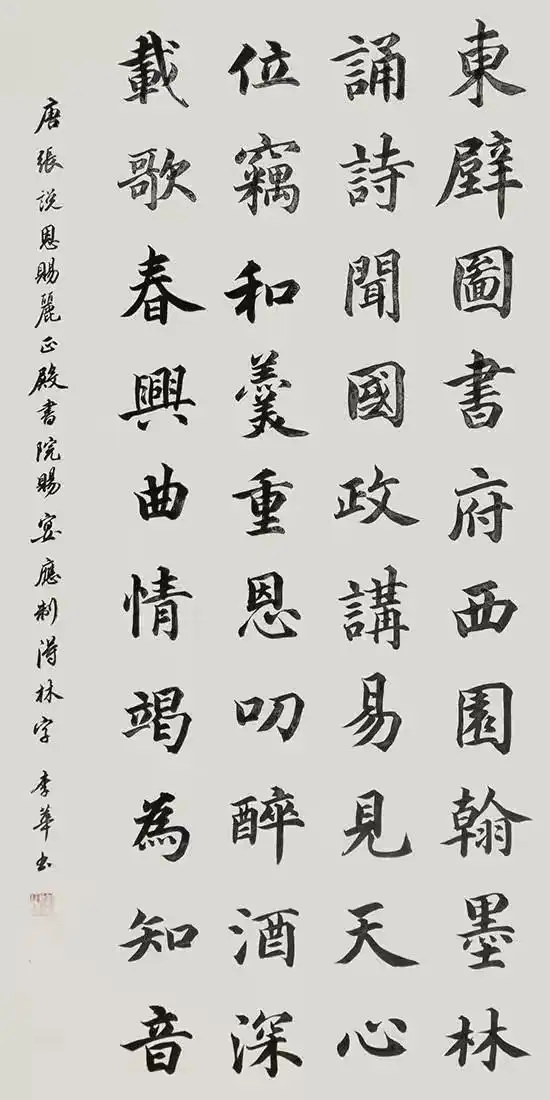 東壁圖書府西園翰墨林
誦詩聞國政講易見天心
位竊和羹重恩叨醉酒深
載歌春興曲情竭為知音
唐張説恩賜麗正殿書院賜宴應制得林字 李華书